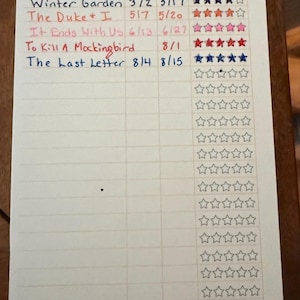 Winter Garden 3/2 3/17
The Duke + I 5/7 5/20
It Ends With Us 6/13 6/27
To Kill A Mockingbird 8/1
The Last Letter 8/4 8/15